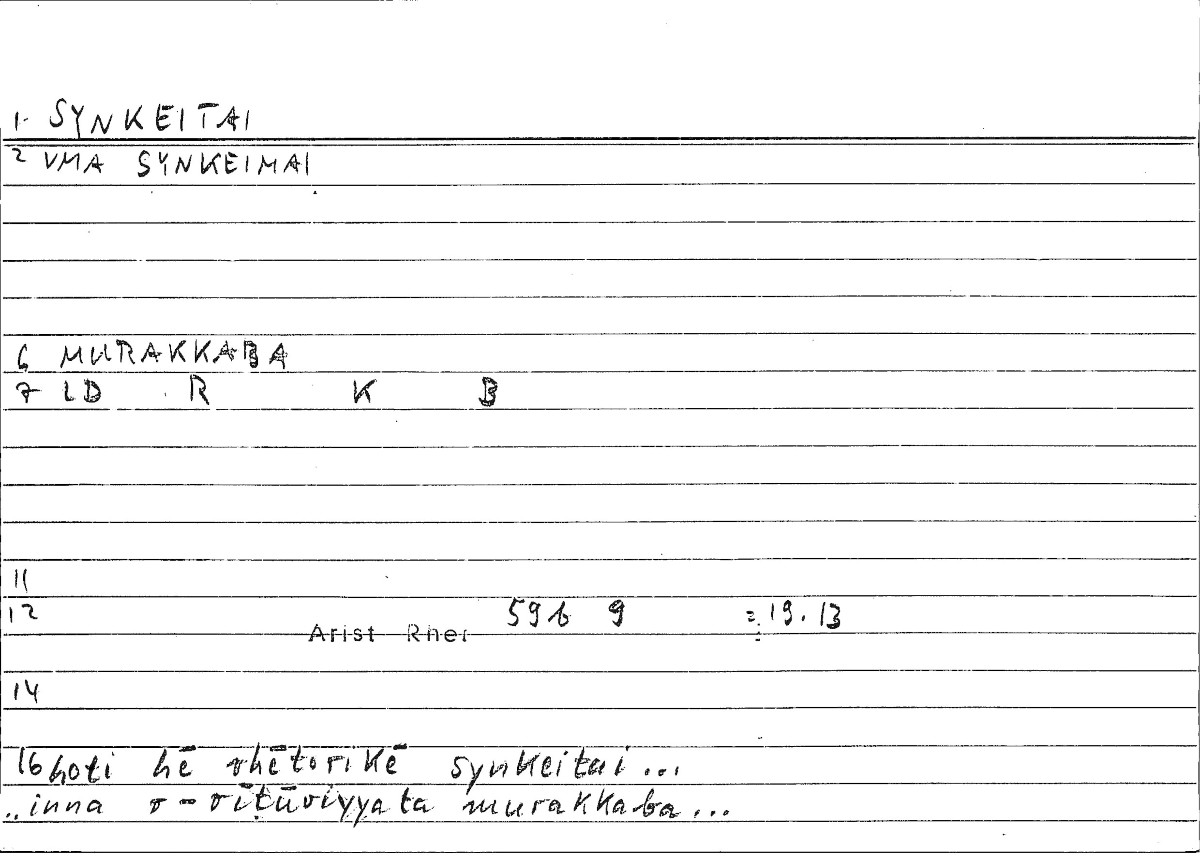 1. SYNKEITAI
2 VMA SYNKEIMAI
6 MURAKKABA
7 LD R K B
11
12 Arist Rhet 59b 9 = 19.13
14
16 hoti hē rhētorikē synkeitai...
..inna r-rīṭūriyyata murakkaba...